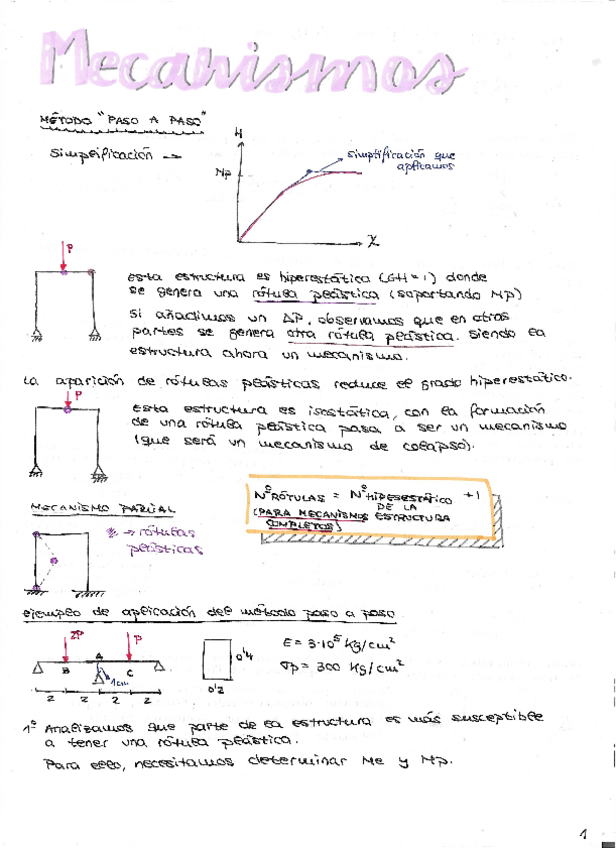 Mecanismos
MÉTODO "PASO A PASO"
Simplificación →
M
Mp
simplificación que
aplicamos
χ
P
Esta estructura es hiperestática (GH = 1) donde
se genera una rótula plástica (soportando Mp)
Si añadimos un ΔP, observamos que en otras
partes se genera otra rótula plástica. Siendo la
estructura ahora un mecanismo.
La aparición de rótulas plásticas reduce el grado hiperestático.
P
Esta estructura es isostática, con la formación
de una rótula plástica pasa a ser un mecanismo
(que será un mecanismo de colapso).
Nº RÓTULAS = Nº HIPERESTÁTICO + 1
DE LA
(PARA MECANISMOS ESTRUCTURA
COMPLETOS)
MECANISMO PARCIAL
→ rótulas
plásticas
Ejemplo de aplicación del método paso a paso
2P
P
A
B
C
1cm
2 2 2 2
0'4
0'2
E = 3·10⁵ Kg/cm²
σp = 300 Kg/cm²
1º Analizamos que parte de la estructura es más susceptible
a tener una rótula plástica.
Para ello, necesitamos determinar Me y Mp.
1